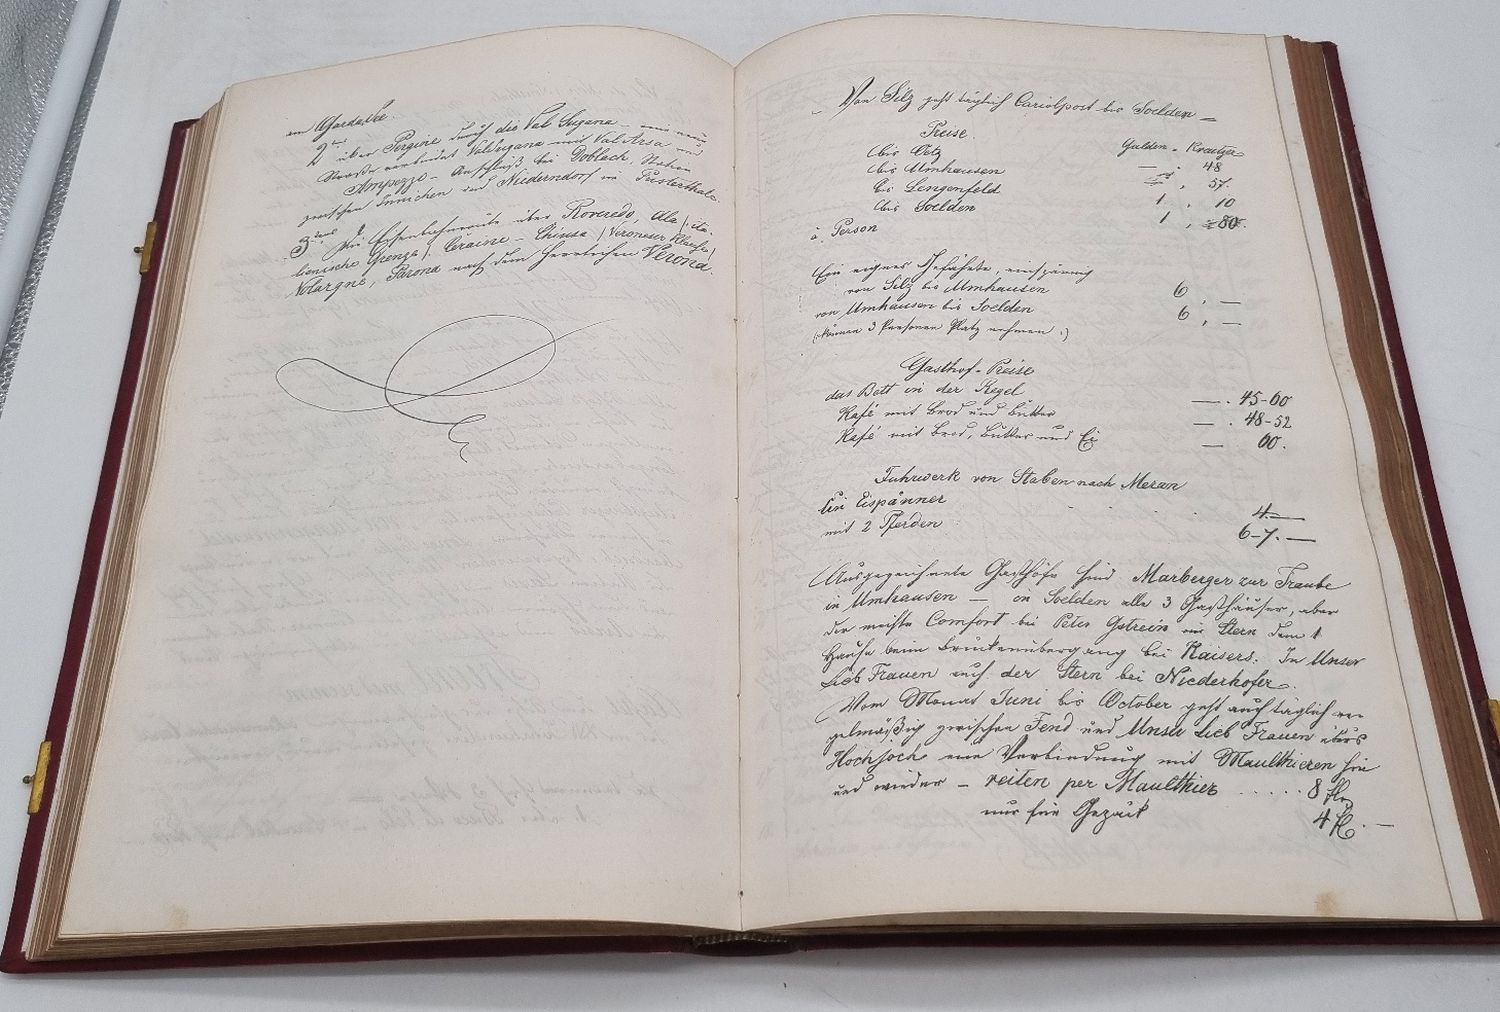 am Garda See.
2tens über Pergine durch die Val Sugana – eine neue
Straße verbindet Valsugana mit Val Arsa und
Ampezzo – Anschluß bei Toblach, Station
zwischen Innichen und Niederndorf im Pusterthale.
3tens Die Eisenbahnroute über Roveredo, Ala /: ita-
lienische Grenze /. Ceraine – Chiusa / Veroneser Klause /
Volargne, Parona nach dem herrlichen Verona.
Von Silz geht täglich Cariolpost bis Soelden –
Preise. Gulden – Kreutzer
bis Oetz — . 48
bis Umhausen — . 57.
bis Lengenfeld 1 . 10
bis Soelden 1 . 80.
à Person
Ein eignes Gefährte, einspännig
von Silz bis Umhausen 6 . —
von Umhausen bis Soelden 6 . —
(: können 3 Personen Platz nehmen :)
Gasthof-Preise
das Bett in der Regel —. 45-60
Kafé mit Brod und Butter —. 48-52
Kafé mit Brod, Butter und Ei — 60.
Fuhrwerk von Staben nach Meran
Ein Eispänner . . . . 4.—
mit 2 Pferden 6-7.—
Ausgezeichnete Gasthöfe sind Marberger zur Traube
in Umhausen — in Soelden alle 3 Gasthäuser, aber
der meiste Comfort bei Peter Gstrein im Stern dem 1
Hause beim Brückenübergang bei Kaisers. In Unser
Lieb Frauen auch der Stern bei Niederhofer.
Vom Monat Juni bis October geht auch täglich re-
gelmäßig zwischen Fend und Unser Lieb Frauen übers
Hochjoch eine Verbindung mit Maulthieren hin
und wieder – reiten per Maulthier . . . . . 8 fl.
nur für Gepäck 4 fl. —